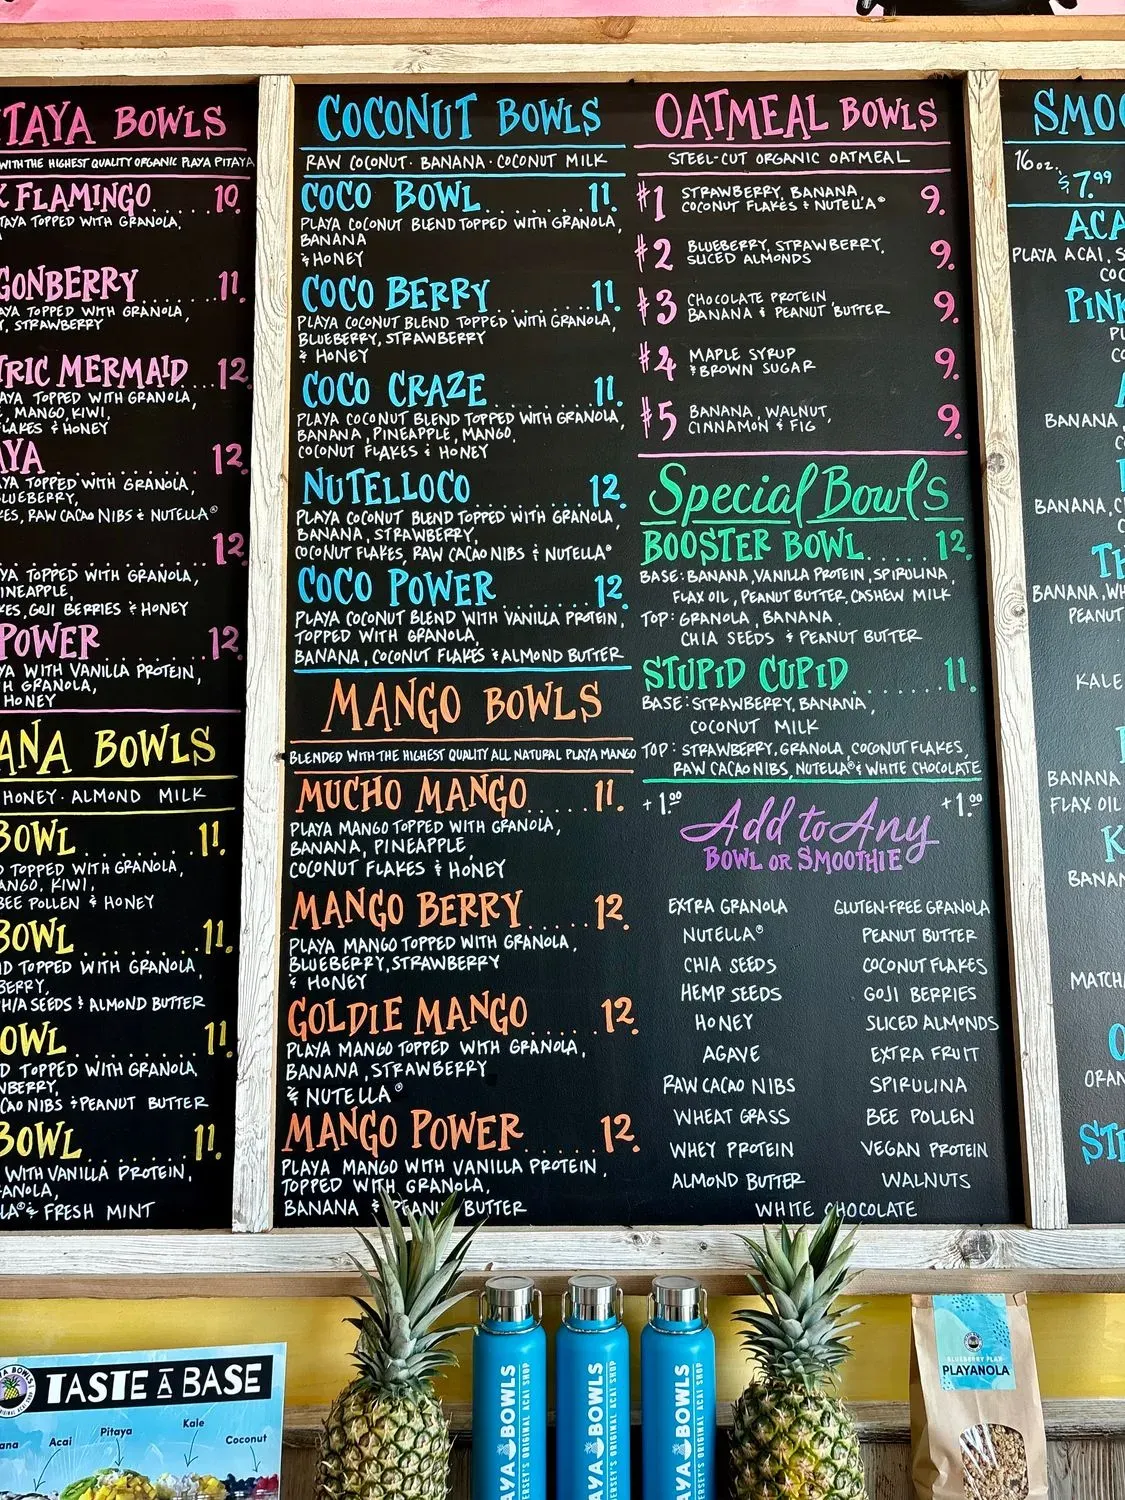 TAYA BOWLS
WITH THE HIGHEST QUALITY ORGANIC PLAYA PITAYA
K FLAMINGO 10.
TAYA TOPPED WITH GRANOLA,
GONBERRY......11.
AYA TOPPED WITH GRANOLA,
Y, STRAWBERRY
TRIC MERMAID...12.
AYA TOPPED WITH GRANOLA,
MANGO, KIWI,
FLAKES & HONEY
AYA 12.
YA TOPPED WITH GRANOLA,
LUEBERRY,
KES, RAW CACAO NIBS & NUTELLA®
12.
YA TOPPED WITH GRANOLA,
INEAPPLE,
KES, GOJI BERRIES & HONEY
POWER 12.
YA WITH VANILLA PROTEIN,
H GRANOLA,
HONEY
ANA BOWLS
HONEY · ALMOND MILK
BOWL........11.
D TOPPED WITH GRANOLA,
ANGO, KIWI,
BEE POLLEN & HONEY
BOWL........11.
D TOPPED WITH GRANOLA,
BERRY,
CHIA SEEDS & ALMOND BUTTER
OWL........11.
D TOPPED WITH GRANOLA
NBERRY,
CAO NIBS & PEANUT BUTTER
BOWL........11.
WITH VANILLA PROTEIN,
ANOLA,
LA® & FRESH MINT
COCONUT BOWLS
RAW COCONUT · BANANA · COCONUT MILK
COCO BOWL.......11.
PLAYA COCONUT BLEND TOPPED WITH GRANOLA,
BANANA
& HONEY
COCO BERRY.......11.
PLAYA COCONUT BLEND TOPPED WITH GRANOLA,
BLUEBERRY, STRAWBERRY
& HONEY
COCO CRAZE.......11.
PLAYA COCONUT BLEND TOPPED WITH GRANOLA,
BANANA, PINEAPPLE, MANGO,
COCONUT FLAKES & HONEY
NUTELLOCO........12.
PLAYA COCONUT BLEND TOPPED WITH GRANOLA,
BANANA, STRAWBERRY,
COCONUT FLAKES, RAW CACAO NIBS & NUTELLA®
COCO POWER.......12.
PLAYA COCONUT BLEND WITH VANILLA PROTEIN,
TOPPED WITH GRANOLA,
BANANA, COCONUT FLAKES & ALMOND BUTTER
MANGO BOWLS
BLENDED WITH THE HIGHEST QUALITY ALL NATURAL PLAYA MANGO
MUCHO MANGO.....11.
PLAYA MANGO TOPPED WITH GRANOLA,
BANANA, PINEAPPLE,
COCONUT FLAKES & HONEY
MANGO BERRY.....12.
PLAYA MANGO TOPPED WITH GRANOLA,
BLUEBERRY, STRAWBERRY
& HONEY
GOLDIE MANGO.....12.
PLAYA MANGO TOPPED WITH GRANOLA,
BANANA, STRAWBERRY
& NUTELLA®
MANGO POWER.....12.
PLAYA MANGO WITH VANILLA PROTEIN,
TOPPED WITH GRANOLA,
BANANA & PEANUT BUTTER
OATMEAL BOWLS
STEEL-CUT ORGANIC OATMEAL
#1 STRAWBERRY, BANANA 9.
COCONUT FLAKES & NUTELLA®
#2 BLUEBERRY, STRAWBERRY, 9.
SLICED ALMONDS
#3 CHOCOLATE PROTEIN, 9.
BANANA & PEANUT BUTTER
#4 MAPLE SYRUP 9.
& BROWN SUGAR
#5 BANANA, WALNUT, 9.
CINNAMON & FIG
Special Bowls
BOOSTER BOWL.....12.
BASE: BANANA, VANILLA PROTEIN, SPIRULINA,
FLAX OIL, PEANUT BUTTER, CASHEW MILK
TOP: GRANOLA, BANANA
CHIA SEEDS & PEANUT BUTTER
STUPID CUPID.......11.
BASE: STRAWBERRY, BANANA,
COCONUT MILK
TOP: STRAWBERRY, GRANOLA, COCONUT FLAKES,
RAW CACAO NIBS, NUTELLA® & WHITE CHOCOLATE
+1.00 Add to Any +1.00
BOWL OR SMOOTHIE
EXTRA GRANOLA GLUTEN-FREE GRANOLA
NUTELLA® PEANUT BUTTER
CHIA SEEDS COCONUT FLAKES
HEMP SEEDS GOJI BERRIES
HONEY SLICED ALMONDS
AGAVE EXTRA FRUIT
RAW CACAO NIBS SPIRULINA
WHEAT GRASS BEE POLLEN
WHEY PROTEIN VEGAN PROTEIN
ALMOND BUTTER WALNUTS
WHITE CHOCOLATE
SMOO
16 oz.
$7.99
ACA
PLAYA ACAI, S
COC
PINK
BANANA,
BANANA, C
TH
BANANA, WH
PEANUT
KALE
BANANA
FLAX OIL
K
BANAN
MATCHA
O
ORAN
STR
TASTE A BASE
ana
Acai
Pitaya
Kale
Coconut
AYA BOWLS
ERSEY'S ORIGINAL ACAI SHOP
AYA BOWLS
ERSEY'S ORIGINAL ACAI SHOP
AYA BOWLS
ERSEY'S ORIGINAL ACAI SHOP
BLUEBERRY FLAX
PLAYANOLA